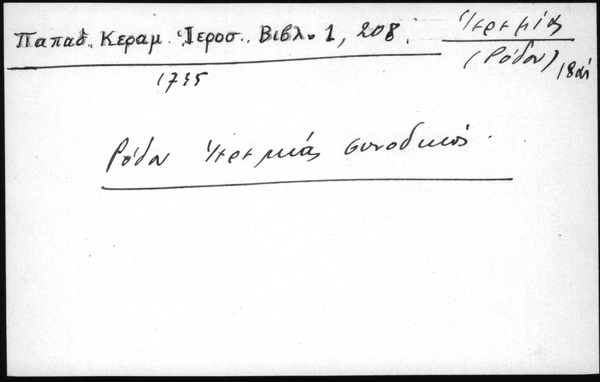 Παπαδ. Κεραμ. Ἱεροσ. Βιβλ. 1, 208.
Ἱερεμίας
(Ρόδου) 18 αἰ
1735
Ρόδου Ἱερεμίας συνοδικός.